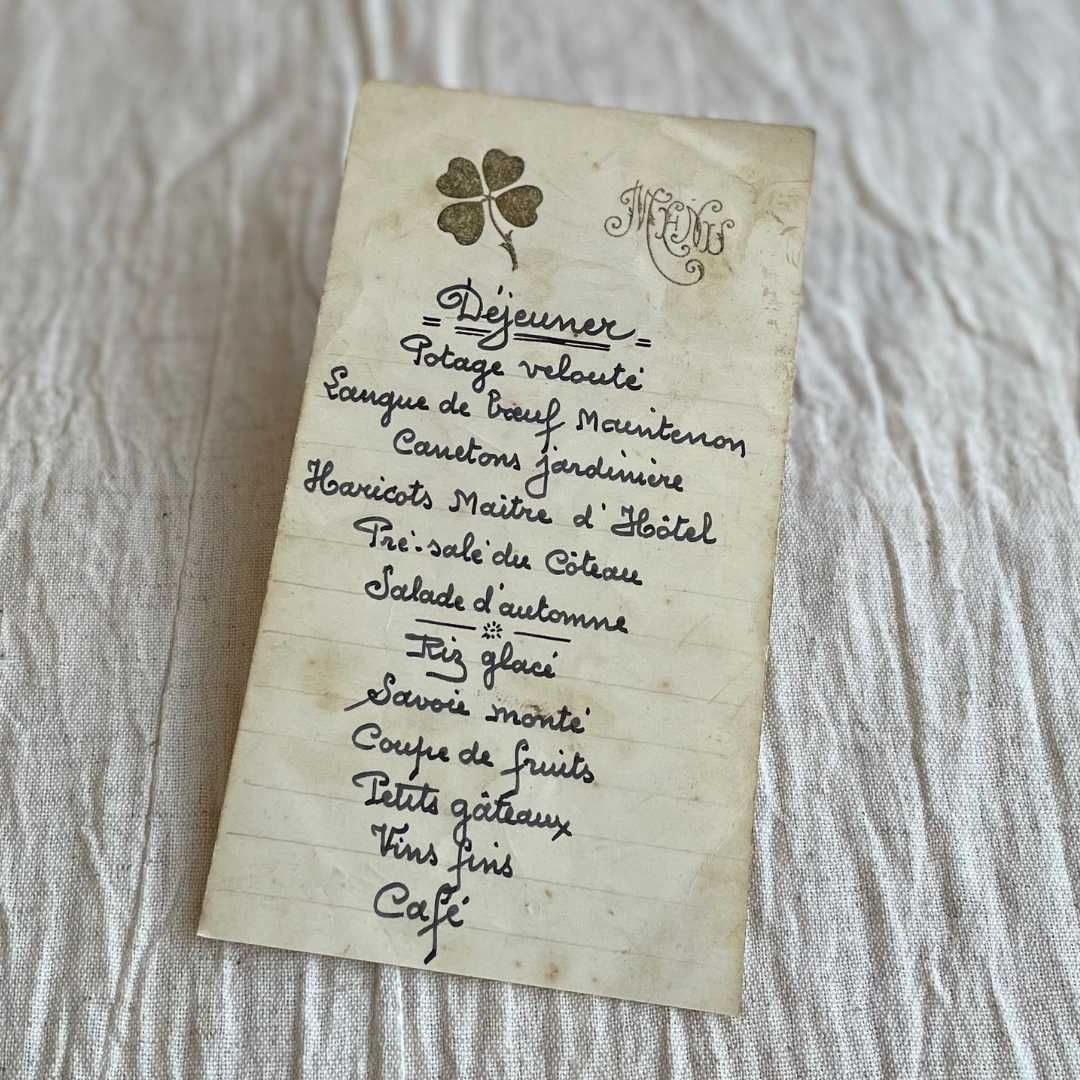 MENU
= Déjeuner =
Potage velouté
Langue de bœuf Maintenon
Canetons jardinière
Haricots Maître d'Hôtel
Pré-salé du Côteau
Salade d'automne
Riz glacé
Savoie monté
Coupe de fruits
Petits gâteaux
Vins fins
Café